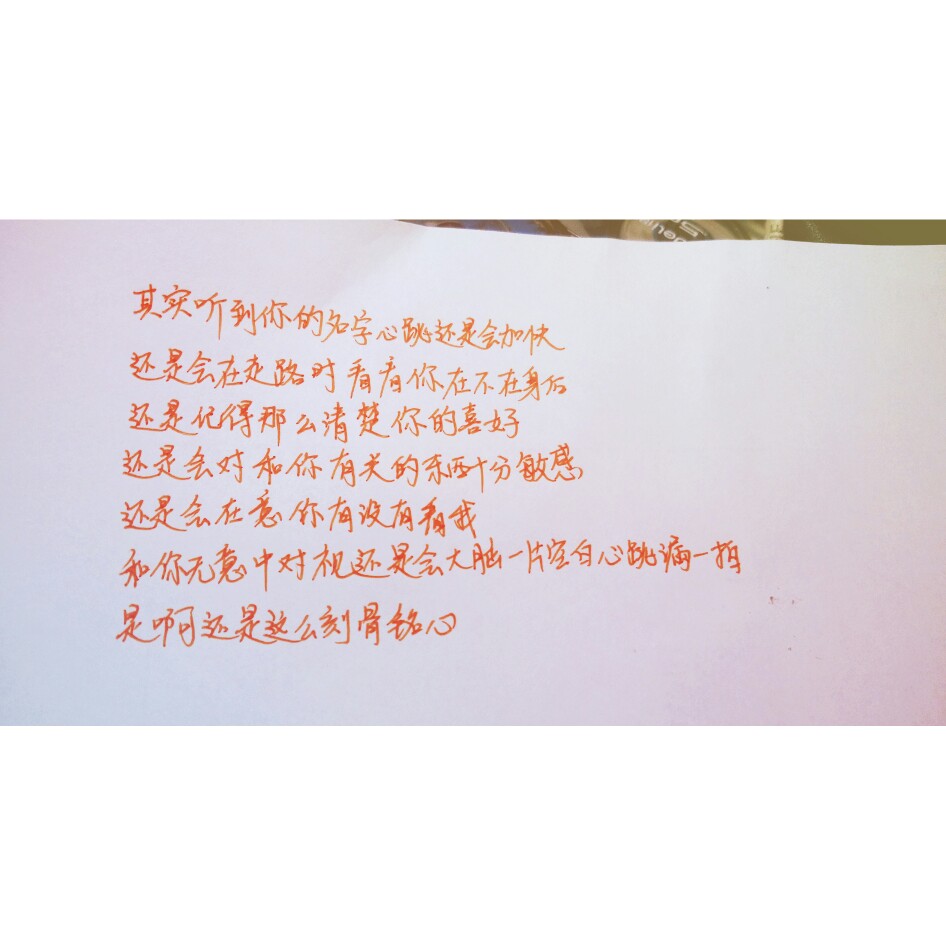 其实听到你的名字心跳还是会加快
还是会在走路时看看你在不在身后
还是记得那么清楚你的喜好
还是会对和你有关的东西十分敏感
还是会在意你有没有看我
和你无意中对视还是会大脑一片空白心跳漏一拍
是啊还是这么刻骨铭心